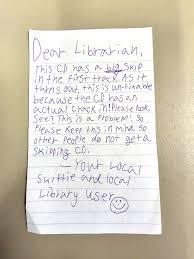 Dear Librarian,
This CD has a big skip
in the first track. As it
turns out, this is un-fixable
because the CD has an
actual crack in! Please look.
See? This is a problem! So
Please keep this in mind so
other people do not get a
skipping CD.
— Your Local
Swiftie and local
Library User